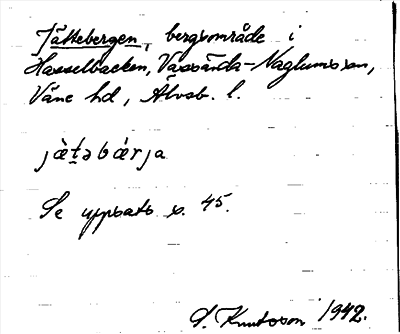 Jättebergen, bergsområde i
Hasselbacken, Vassända-Naglums sn,
Väne hd, Älvsb. l.
jæ̀t̠əbæ̀rja
Se uppsats s. 45.
S. Knutsson 1942.